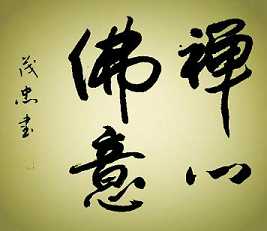 禅心
佛意
茂忠書